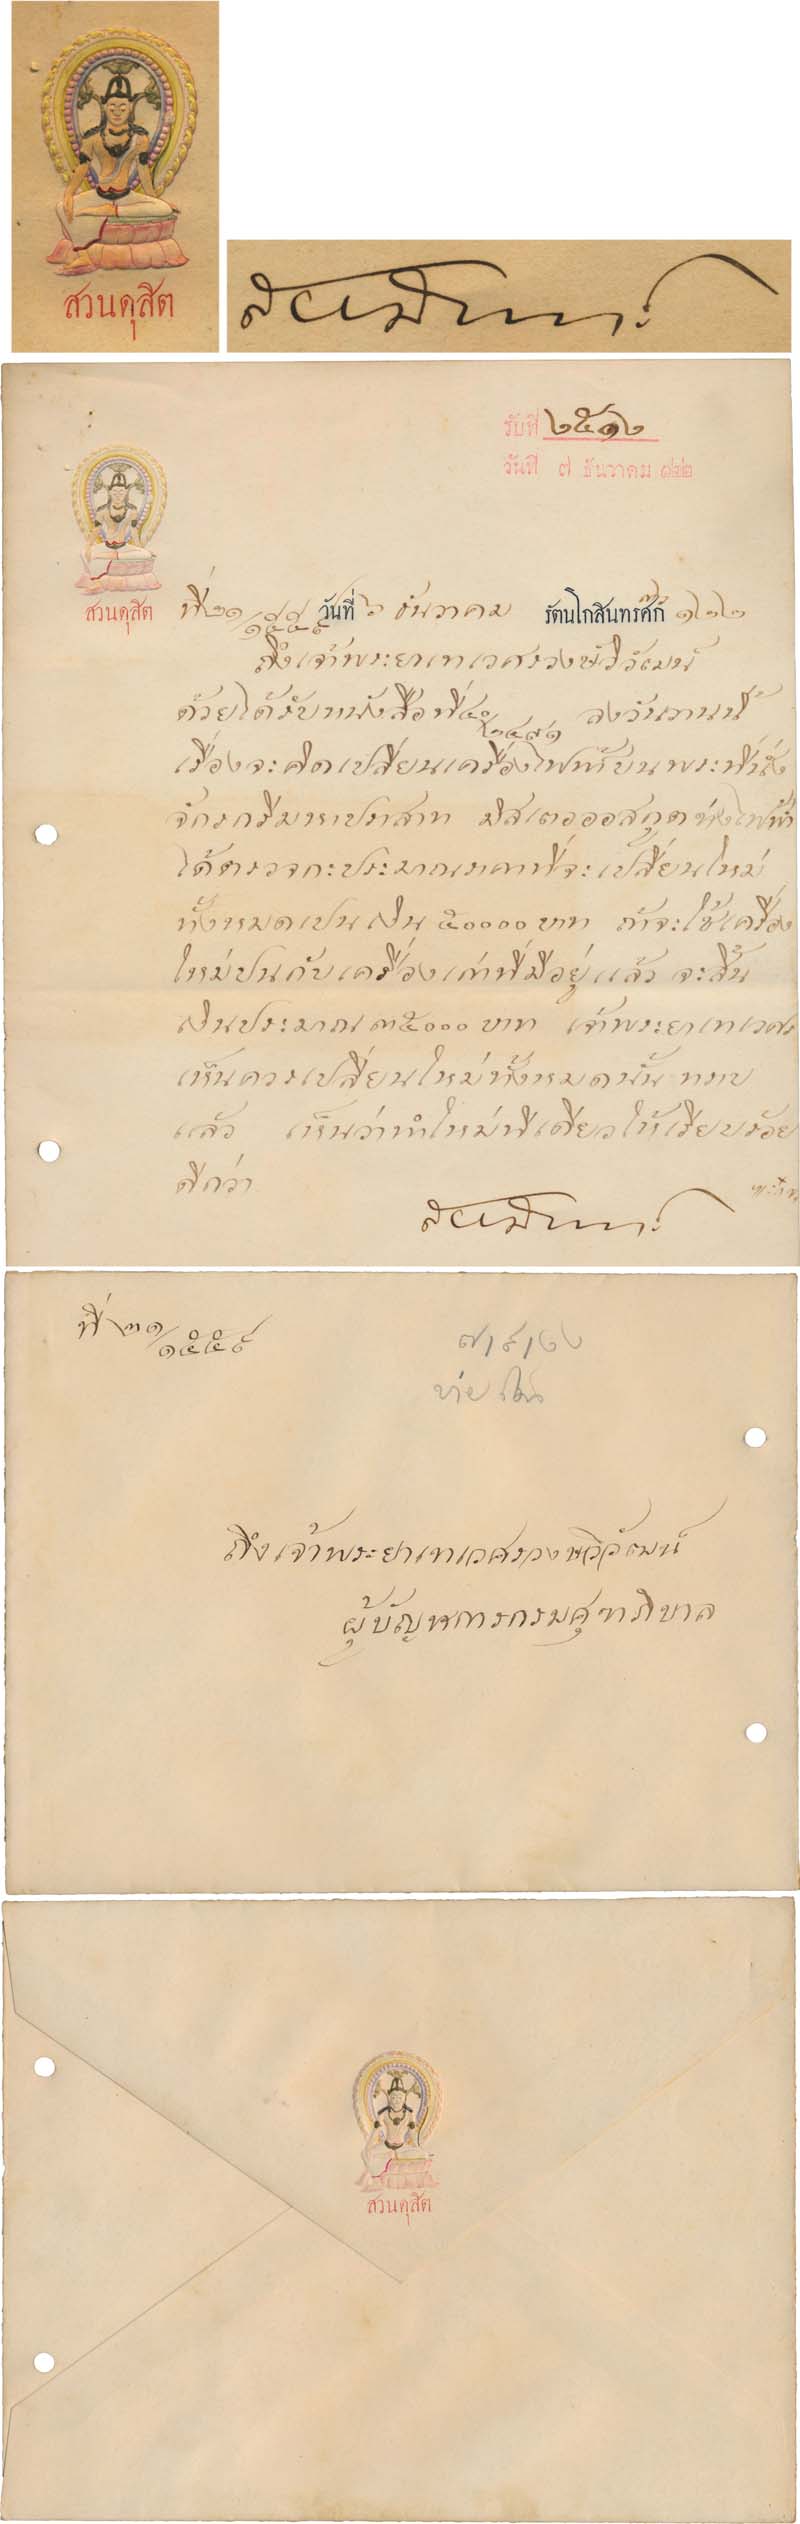 สวนดุสิต
สยามินทร์
รับที่ ๒๕๑๒
วันที่ ๗ ธันวาคม ๑๒๒
สวนดุสิต
ที่ ๒๑/๑๕๕๔ วันที่ ๖ ธันวาคม รัตนโกสินทรศก๊ก์ ๑๒๒
ถึงเจ้าพระยาเทเวศรวงษ์วิวัฒน์
ด้วยได้รับหนังสือที่ ลงวันวานนี้
เรื่องจะคิดเปลี่ยนเครื่องไฟฟ้าบนพระที่นั่ง
จักรกรีมหาปราสาท มิสเตอออสกุด ช่างไฟฟ้า
ได้ตรวจกะประมาณราคาที่จะเปลี่ยนใหม่
ทั้งหมดเปนเงิน ๕๐๐๐๐ บาท ถ้าจะใช้เครื่อง
ใหม่ปนกับเครื่องเก่าที่มีอยู่แล้ว จะสิ้น
เงินประมาณ ๓๕๐๐๐ บาท เจ้าพระยาเทเวศร
เห็นควรเปลี่ยนใหม่ทั้งหมดนั้น ทราบ
แล้ว เห็นว่าทำใหม่ทีเดียวให้เรียบร้อย
ดีกว่า
สยามินทร์
ที่ ๒๑/๑๕๕๔
ถึง เจ้าพระยาเทเวศรวงษวิวัฒน์
ผู้บัญชาการกรมศุขาภิบาล
สวนดุสิต